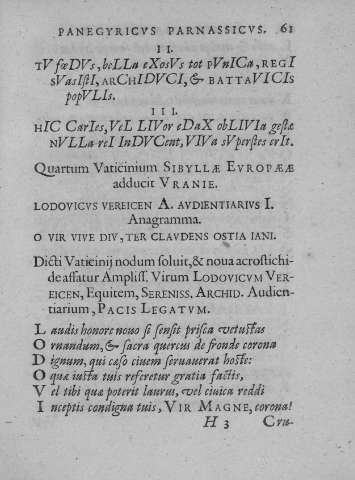 PANEGYRICVS PARNASSICVS. 61
II.
TV fœDVs, beLLa eXosVs tot pVnICa, REGI
sVasIstI, ARCHIDVCI, & BATTAVICIs
popVLIs.
III.
HIC CarIes, VeL LIVor eDaX obLIVIa gestæ
NVLLa reI InDVCent, VIVa sVperstes erIt.
Quartum Vaticinium SIBYLLÆ EVROPÆÆ
adducit VRANIE.
LODOVICVS VEREICEN A. AVDIENTIARIVS I.
Anagramma.
O VIR VIVE DIV, TER CLAVDENS OSTIA IANI.
Dicti Vaticinij nodum soluit, & noua acrostichi-
de affatur Ampliss. Virum LODOVICVM VER-
EICEN, Equitem, SERENISS. ARCHID. Audien-
tiarium, PACIS LEGATVM.
L audis honore nouo si sensit prisca vetustas
O rnandum, & sacra quercus de fronde corona
D ignum, qui caso ciuem seruauerat hoste:
O quæ iusta tuis referetur gratia factis,
V el tibi quæ poterit laurus, vel ciuica reddi
I nceptis condigna tuis, VIR MAGNE, corona!
H 3 Cru-